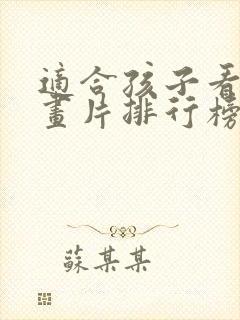 適合孩子看
畫片排行榜
蘇某某